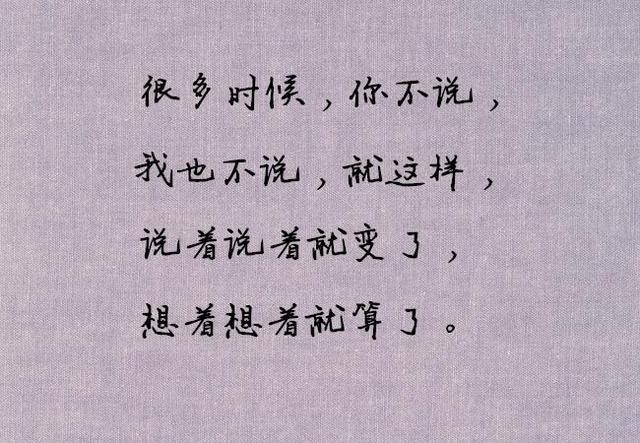 很多时候，你不说，
我也不说，就这样，
说着说着就变了，
想着想着就算了。